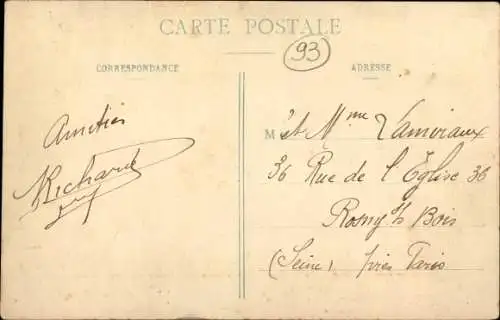 CARTE POSTALE
93
CORRESPONDANCE
ADRESSE
Amitiés
Richard
M et Mme Lamoriaux
36 Rue de l'Église 36
Rosny s/s Bois
(Seine) près Paris